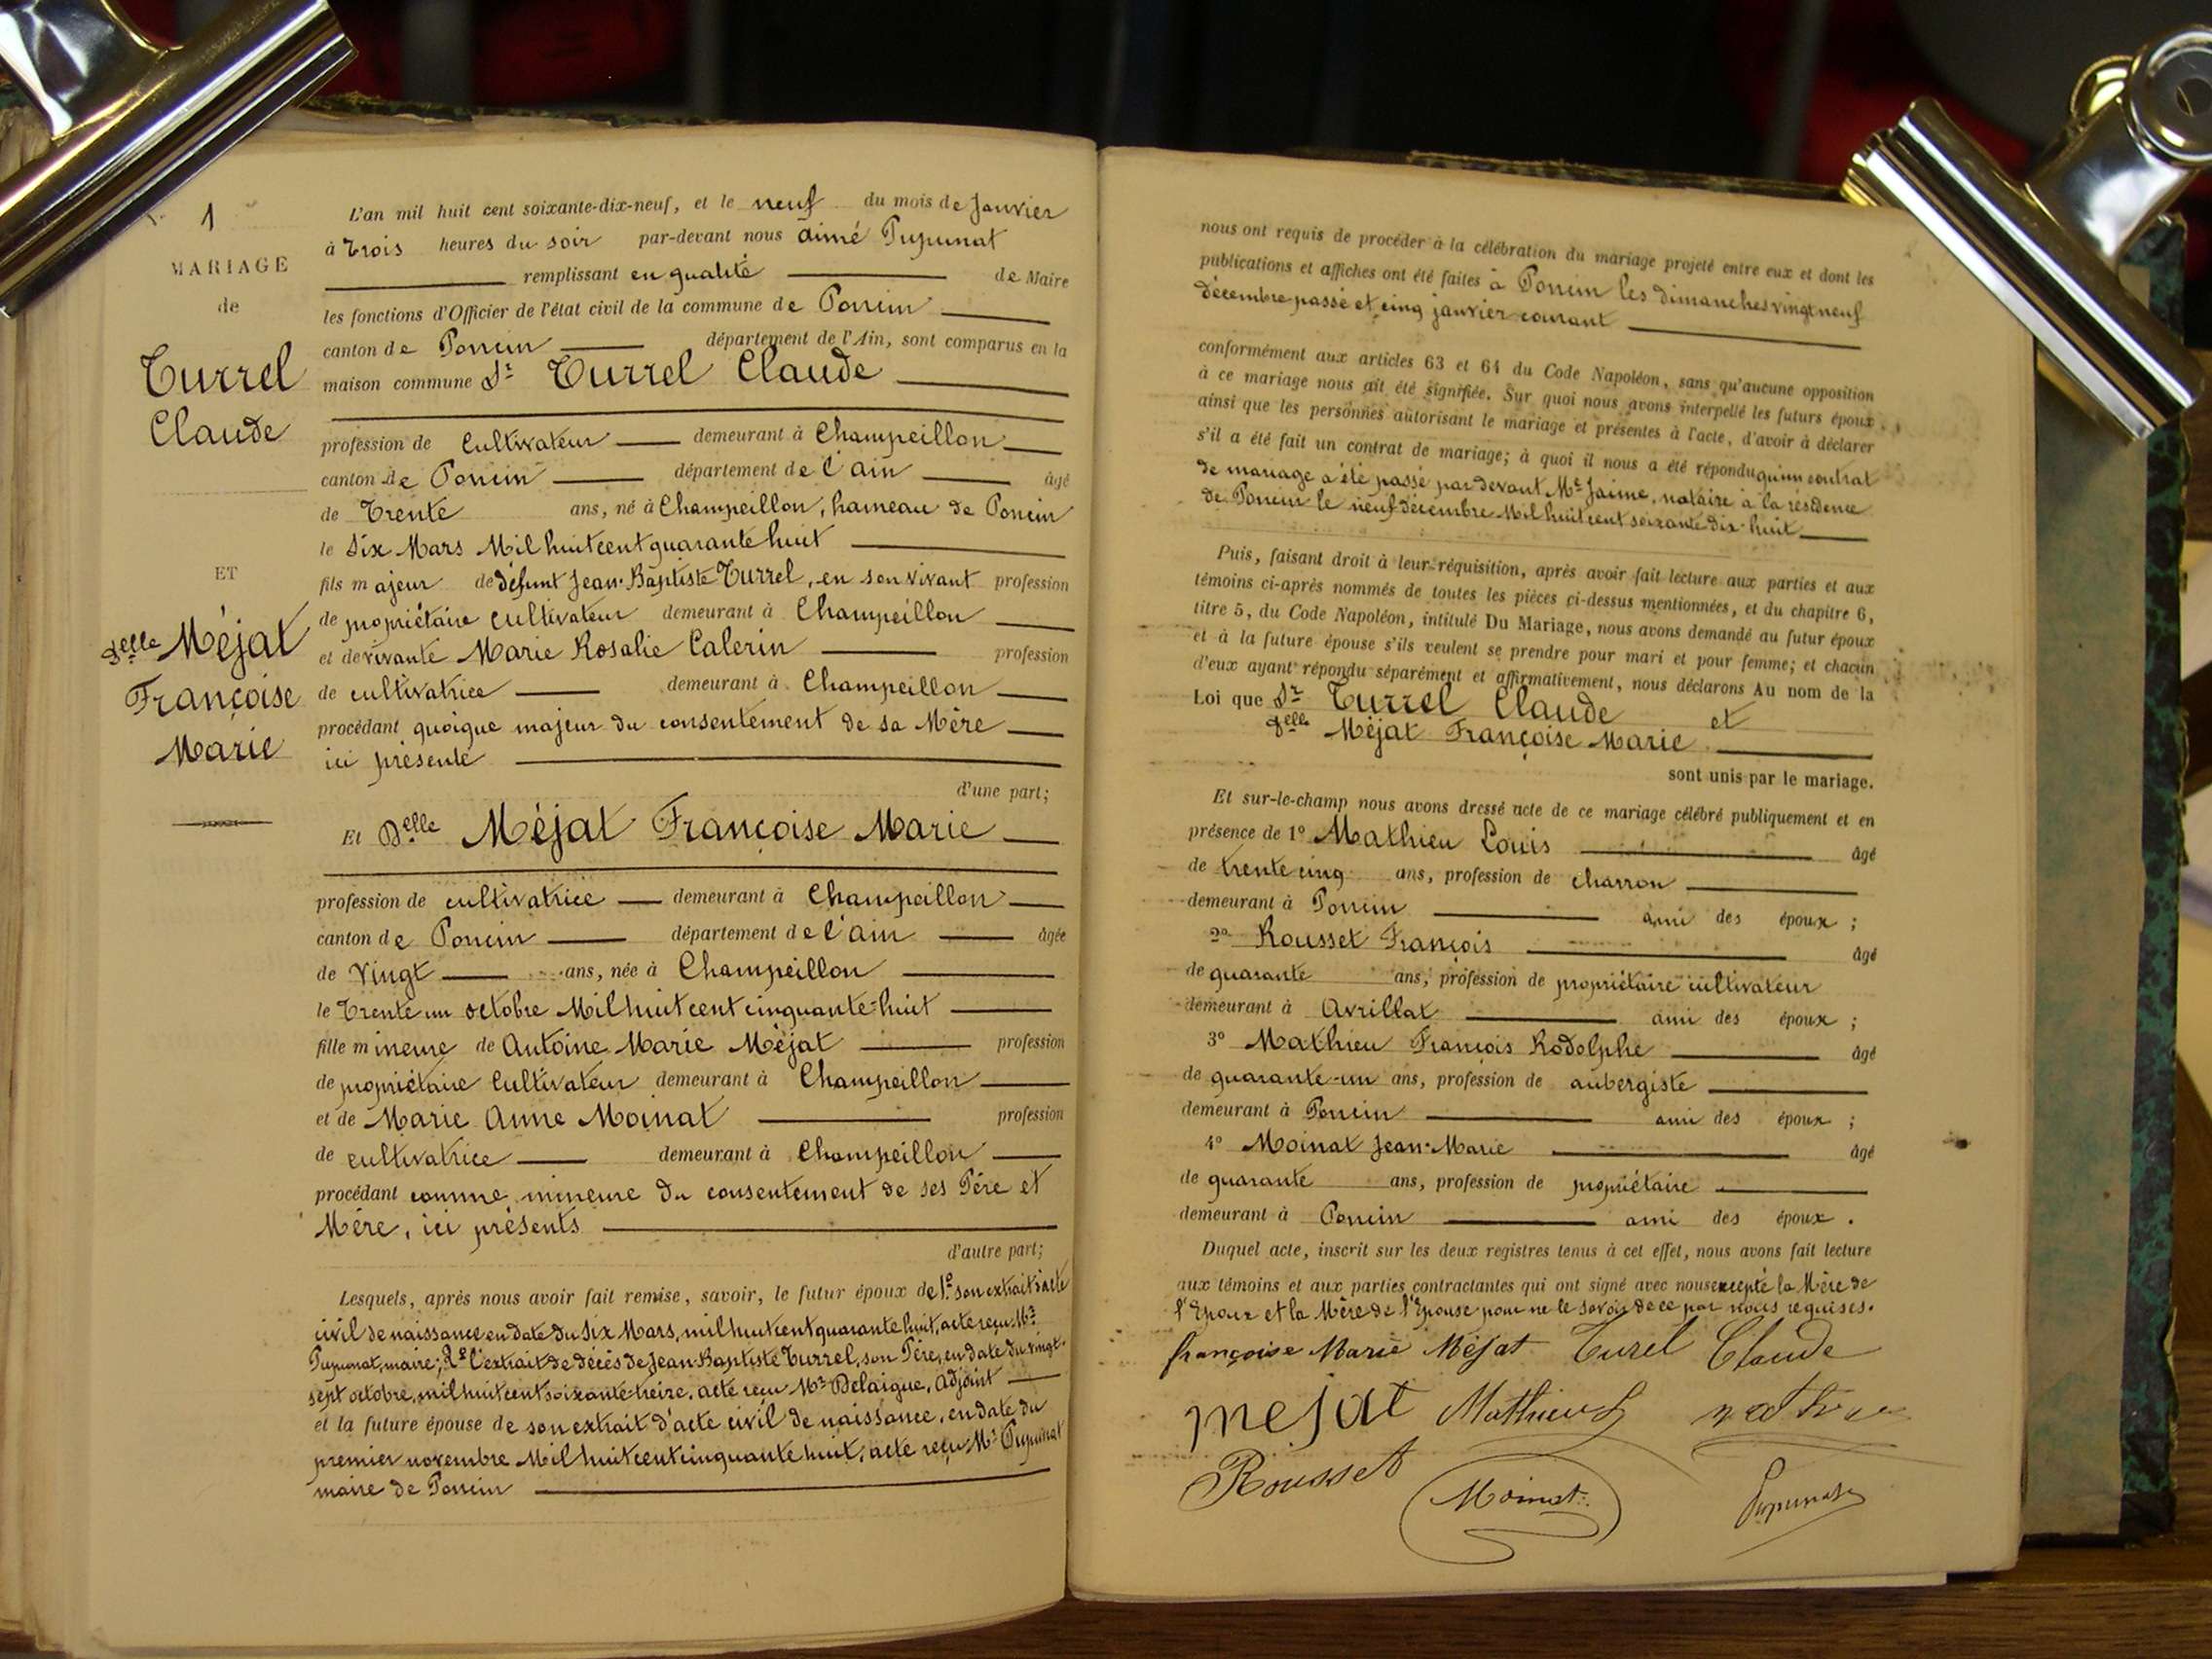 1
MARIAGE
de
Turrel
Claude
ET
Delle Méjat
Françoise
Marie
L'an mil huit cent soixante-dix-neuf, et le neuf du mois de Janvier
à Trois heures du soir par-devant nous aimé Pupunat
remplissant en qualité de Maire
les fonctions d'Officier de l'état civil de la commune de Poncin
canton de Poncin département de l'Ain, sont comparus en la
maison commune Sr Turrel Claude
profession de Cultivateur demeurant à Champeillon
canton de Poncin département de l'ain âgé
de Trente ans, né à Champeillon, hameau de Poncin
le Six Mars Mil huit cent quarante huit
fils majeur de défunt Jean-Baptiste Turrel, en son vivant profession
de propriétaire cultivateur demeurant à Champeillon
et de vivante Marie Rosalie Calerin profession
de cultivatrice demeurant à Champeillon
procédant quoique majeur du consentement de sa Mère
ici présente
d'une part;
Et Delle Méjat Françoise Marie
profession de cultivatrice demeurant à Champeillon
canton de Poncin département de l'ain âgée
de Vingt ans, née à Champeillon
le Trente un octobre Mil huit cent cinquante-huit
fille mineure de Antoine Marie Méjat profession
de propriétaire Cultivateur demeurant à Champeillon
et de Marie Anne Moinat profession
de cultivatrice demeurant à Champeillon
procédant comme mineure du consentement de ses Père et
Mère, ici présents
d'autre part;
Lesquels, après nous avoir fait remise, savoir, le futur époux de 1º son extrait d'acte
civil de naissance en date du Six Mars, mil huit cent quarante huit, acte reçu Mr
Pupunat, maire; 2º l'extrait de décès de Jean-Baptiste Turrel, son Père, en date du vingt-
sept octobre, mil huit cent soixante-treize, acte reçu Mr Delaigue, Adjoint
et la future épouse de son extrait d'acte civil de naissance, en date du
premier novembre Mil huit cent cinquante huit, acte reçu Mr Pupunat
maire de Poncin
nous ont requis de procéder à la célébration du mariage projeté entre eux et dont les
publications et affiches ont été faites à Poncin les dimanches vingt neuf
décembre passé et cinq janvier courant
conformément aux articles 63 et 64 du Code Napoléon, sans qu'aucune opposition
à ce mariage nous ait été signifiée. Sur quoi nous avons interpellé les futurs époux
ainsi que les personnes autorisant le mariage et présentes à l'acte, d'avoir à déclarer
s'il a été fait un contrat de mariage; à quoi il nous a été répondu qu'un contrat
de mariage a été passé par devant Me Jaime, notaire à la résidence
de Poncin le neuf décembre Mil huit cent soixante dix-huit
Puis, faisant droit à leur réquisition, après avoir fait lecture aux parties et aux
témoins ci-après nommés de toutes les pièces ci-dessus mentionnées, et du chapitre 6,
titre 5, du Code Napoléon, intitulé Du Mariage, nous avons demandé au futur époux
et à la future épouse s'ils veulent se prendre pour mari et pour femme; et chacun
d'eux ayant répondu séparément et affirmativement, nous déclarons Au nom de la
Loi que Sr Turrel Claude et
Delle Méjat Françoise Marie
sont unis par le mariage.
Et sur-le-champ nous avons dressé acte de ce mariage célébré publiquement et en
présence de 1º Mathieu Louis âgé
de trente cinq ans, profession de charron
demeurant à Poncin ami des époux;
2º Rousset François âgé
de quarante ans, profession de propriétaire cultivateur
demeurant à Avrillat ami des époux;
3º Mathieu François Rodolphe âgé
de quarante-un ans, profession de aubergiste
demeurant à Poncin ami des époux;
4º Moinat Jean-Marie âgé
de quarante ans, profession de propriétaire
demeurant à Poncin ami des époux.
Duquel acte, inscrit sur les deux registres tenus à cet effet, nous avons fait lecture
aux témoins et aux parties contractantes qui ont signé avec nous excepté la Mère de
l'Epoux et la Mère de l'Epouse pour ne le savoir de ce par nous requises.
françoise Marie Méjat Turel Claude
mejat Mathieu L
Rousset Moinat Pupunat